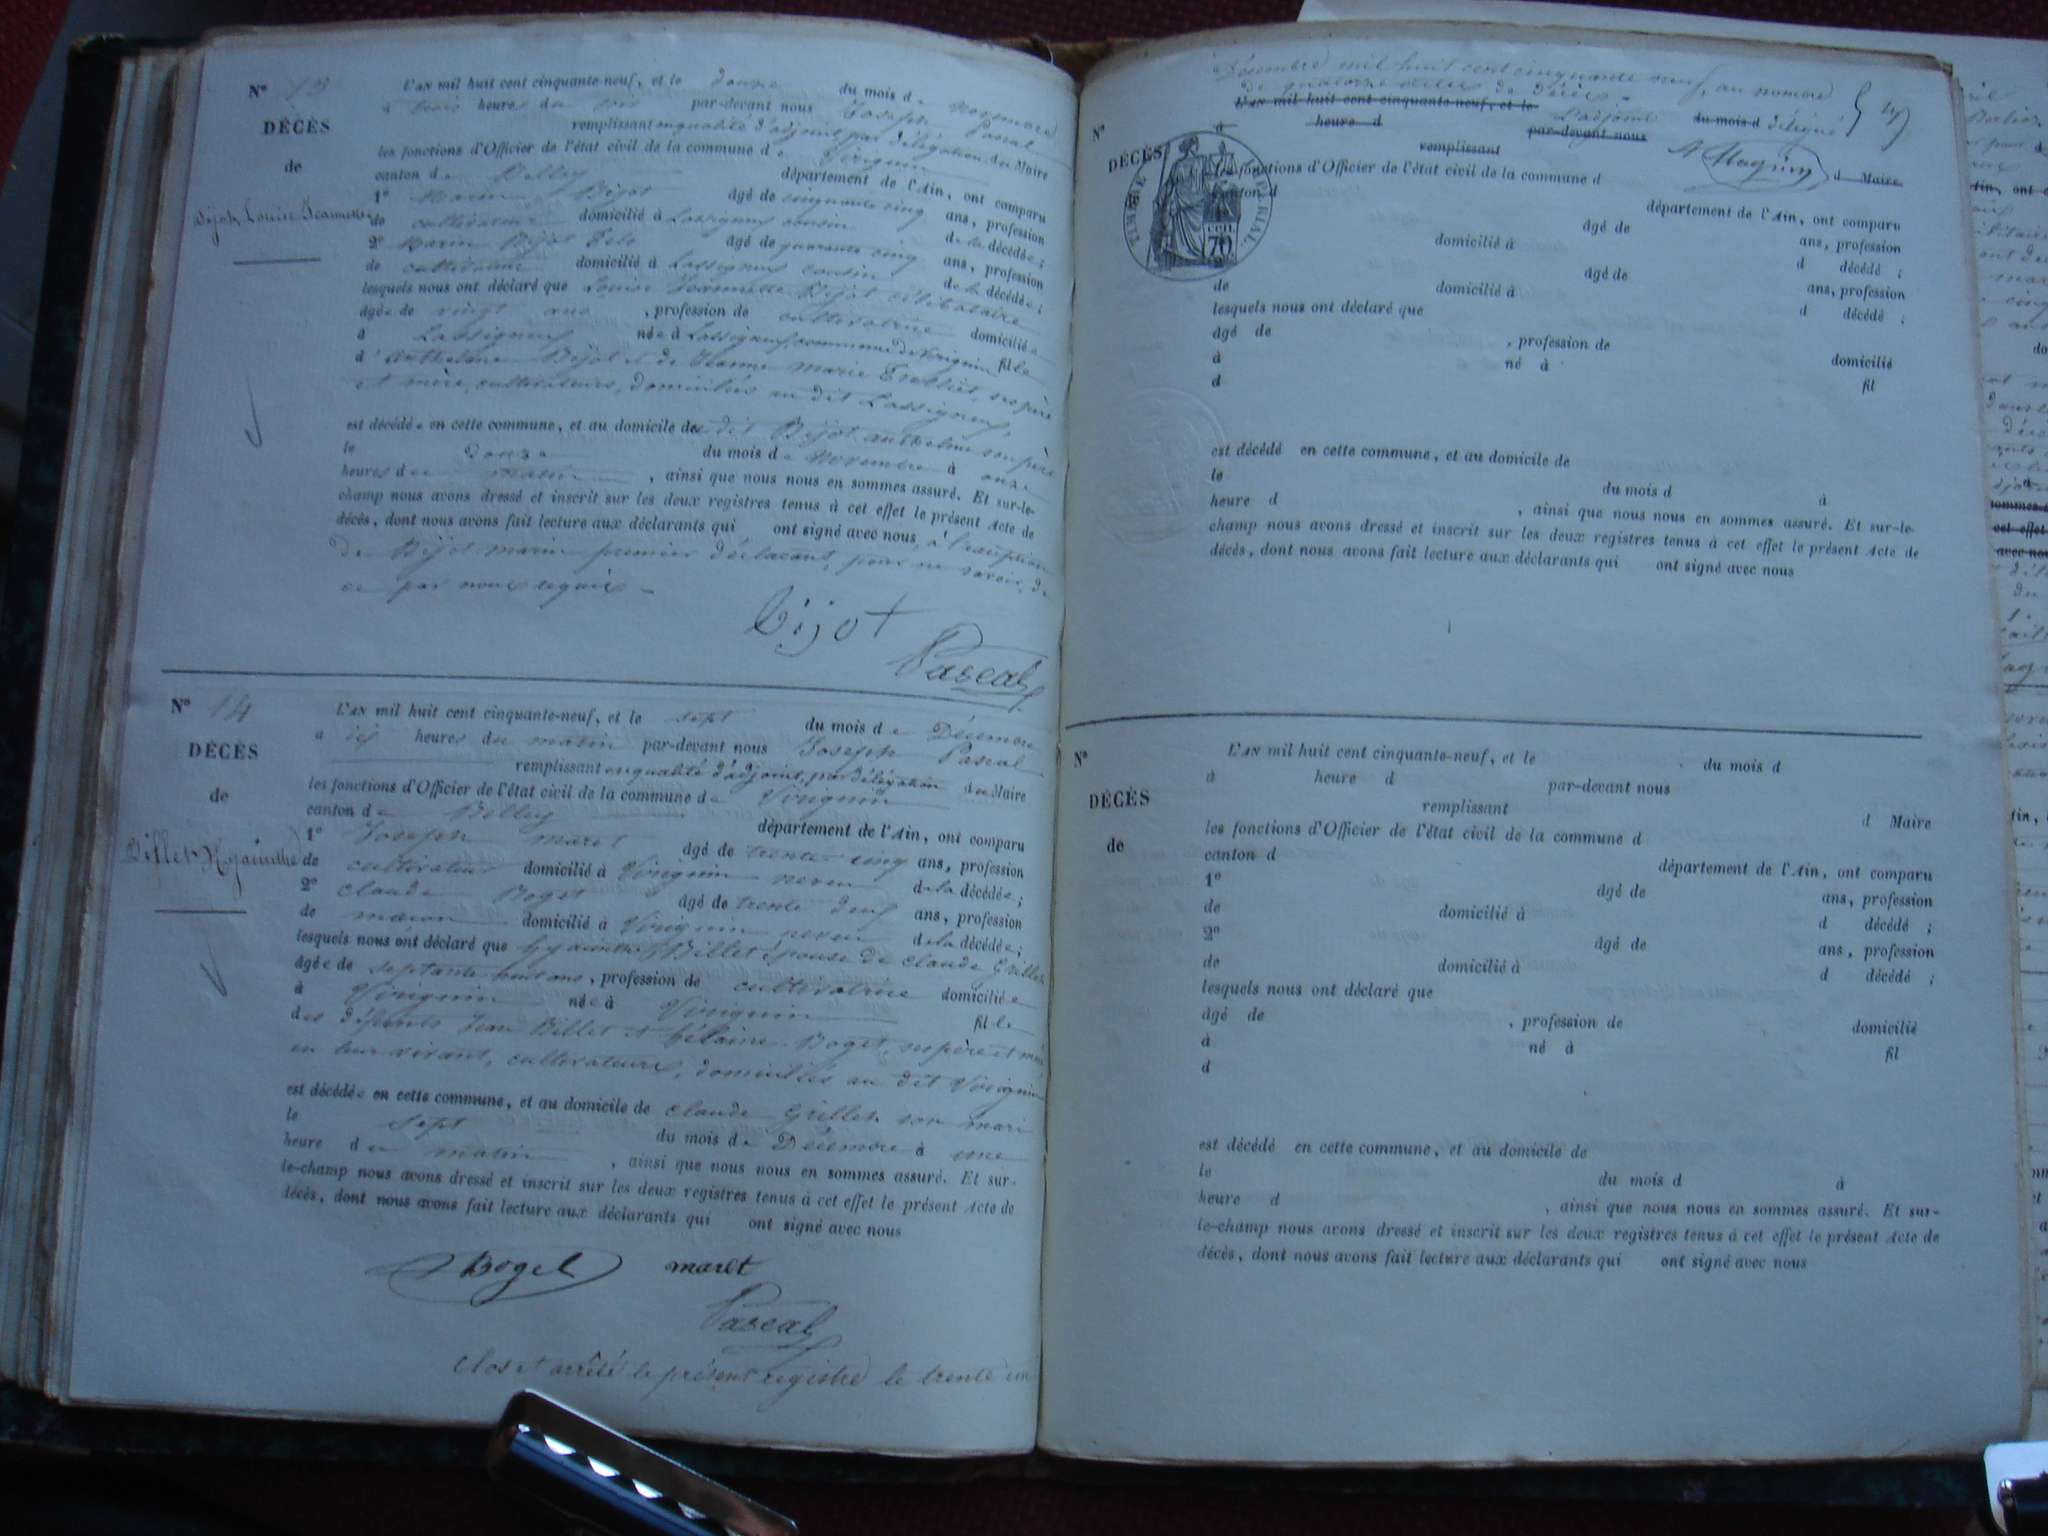 N° 13
DÉCÈS
de
Bijot Louise Jeannette
L'AN mil huit cent cinquante-neuf, et le douze du mois de Novembre
à trois heures du soir par-devant nous Joseph Pascal
remplissant en qualité d'adjoint, par délégation du Maire
les fonctions d'Officier de l'état civil de la commune de Virignin
canton de Belley département de l'Ain, ont comparu
1° Marin Bijot âgé de cinquante cinq ans, profession
de cultivateur domicilié à Lassigneux cousin de la décédée ;
2° Marin Bijot âgé de quarante cinq ans, profession
de cultivateur domicilié à Lassigneux cousin de la décédée ;
lesquels nous ont déclaré que Louise Jeannette Bijot célibataire
âgée de vingt ans , profession de cultivatrice domiciliée
à Lassigneux née à Lassigneux commune de Virignin fille
d'Anthelme Bijot et de Jeanne Marie ses père
et mère, cultivateurs, domiciliés au dit Lassigneux,
est décédée en cette commune, et au domicile de dit Bijot anthelme son père
le douze du mois de Novembre à onze
heures du matin , ainsi que nous nous en sommes assuré. Et sur-le-
champ nous avons dressé et inscrit sur les deux registres tenus à cet effet le présent Acte de
décès, dont nous avons fait lecture aux déclarants qui ont signé avec nous, à l'exception
de Bijot marin premier déclarant, pour ne savoir, de
ce par nous requis -
bijot
Pascal
N° 14
DÉCÈS
de
Billet Hyacinthe
L'AN mil huit cent cinquante-neuf, et le sept du mois de Décembre
à dix heures du matin par-devant nous Joseph Pascal
remplissant en qualité d'adjoint, par délégation du Maire
les fonctions d'Officier de l'état civil de la commune de Virignin
canton de Belley département de l'Ain, ont comparu
1° Joseph maret âgé de trente cinq ans, profession
de cultivateur domicilié à Virignin neveu de la décédée ;
2° claude Boget âgé de trente ans, profession
de maçon domicilié à Virignin neveu de la décédée ;
lesquels nous ont déclaré que hyacinthe Billet épouse de claude Grillet
âgée de septante huit ans , profession de cultivatrice domiciliée
à Virignin née à Virignin fille
des défunts Jean Billet et Boget, ses père et mère
en leur vivant, cultivateurs, domiciliés au dit Virignin
est décédée en cette commune, et au domicile de claude Grillet son mari
le sept du mois de Décembre à une
heure du matin , ainsi que nous nous en sommes assuré. Et sur-
le-champ nous avons dressé et inscrit sur les deux registres tenus à cet effet le présent Acte de
décès, dont nous avons fait lecture aux déclarants qui ont signé avec nous
Boget maret
Pascal
Clos et arrêté le présent registre le trente un
Décembre mil huit cent cinquante neuf, au nombre
de quatorze actes de décès -
L'AN mil huit cent cinquante-neuf, et le du mois d
L'adjoint délégué
à heure d par-devant nous
N°
DÉCÈS
TIMBRE IMPÉRIAL
70 CENT.
remplissant d Maire
Magnin
les fonctions d'Officier de l'état civil de la commune d
canton d département de l'Ain, ont comparu
âgé de ans, profession
domicilié à d décédé ;
âgé de ans, profession
de domicilié à d décédé ;
lesquels nous ont déclaré que
âgé de , profession de domicilié
à né à fil
d
est décédé en cette commune, et au domicile de
le du mois d à
heure d , ainsi que nous nous en sommes assuré. Et sur-le-
champ nous avons dressé et inscrit sur les deux registres tenus à cet effet le présent Acte de
décès, dont nous avons fait lecture aux déclarants qui ont signé avec nous
N°
DÉCÈS
de
L'AN mil huit cent cinquante-neuf, et le du mois d
à heure d par-devant nous
remplissant d Maire
les fonctions d'Officier de l'état civil de la commune d
canton d département de l'Ain, ont comparu
1° âgé de ans, profession
de domicilié à d décédé ;
2° âgé de ans, profession
de domicilié à d décédé ;
lesquels nous ont déclaré que
âgé de , profession de domicilié
à né à fil
d
est décédé en cette commune, et au domicile de
le du mois d à
heure d , ainsi que nous nous en sommes assuré. Et sur-
le-champ nous avons dressé et inscrit sur les deux registres tenus à cet effet le présent Acte de
décès, dont nous avons fait lecture aux déclarants qui ont signé avec nous